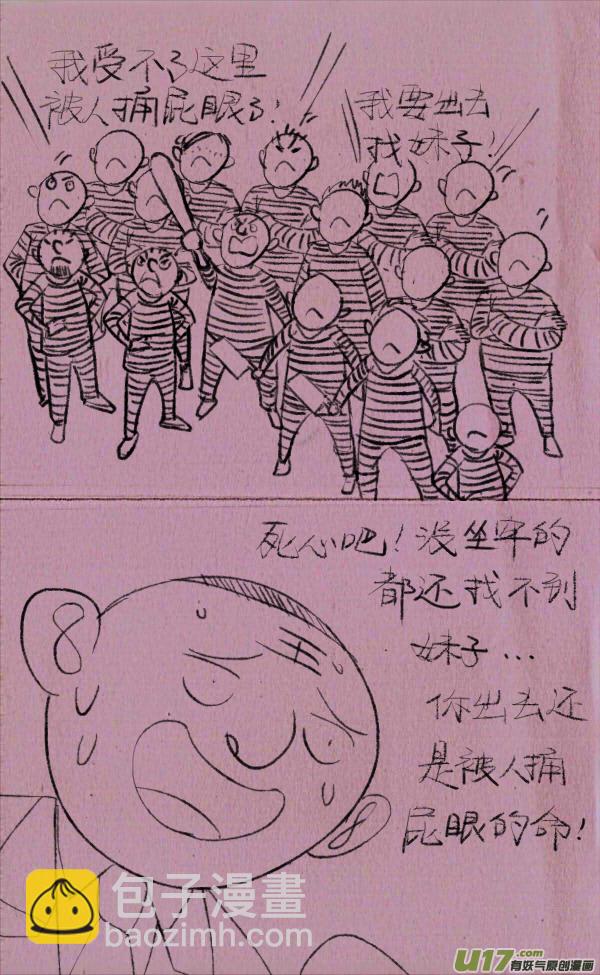 我受不了这里
被人捅屁眼了!
我要出去
找妹子!
死心吧!没坐牢的
都还找不到
妹子...
你出去还
是被人捅
屁眼的命!
王
包子漫畫
baozimh.com
U17.com
有妖气原创漫画